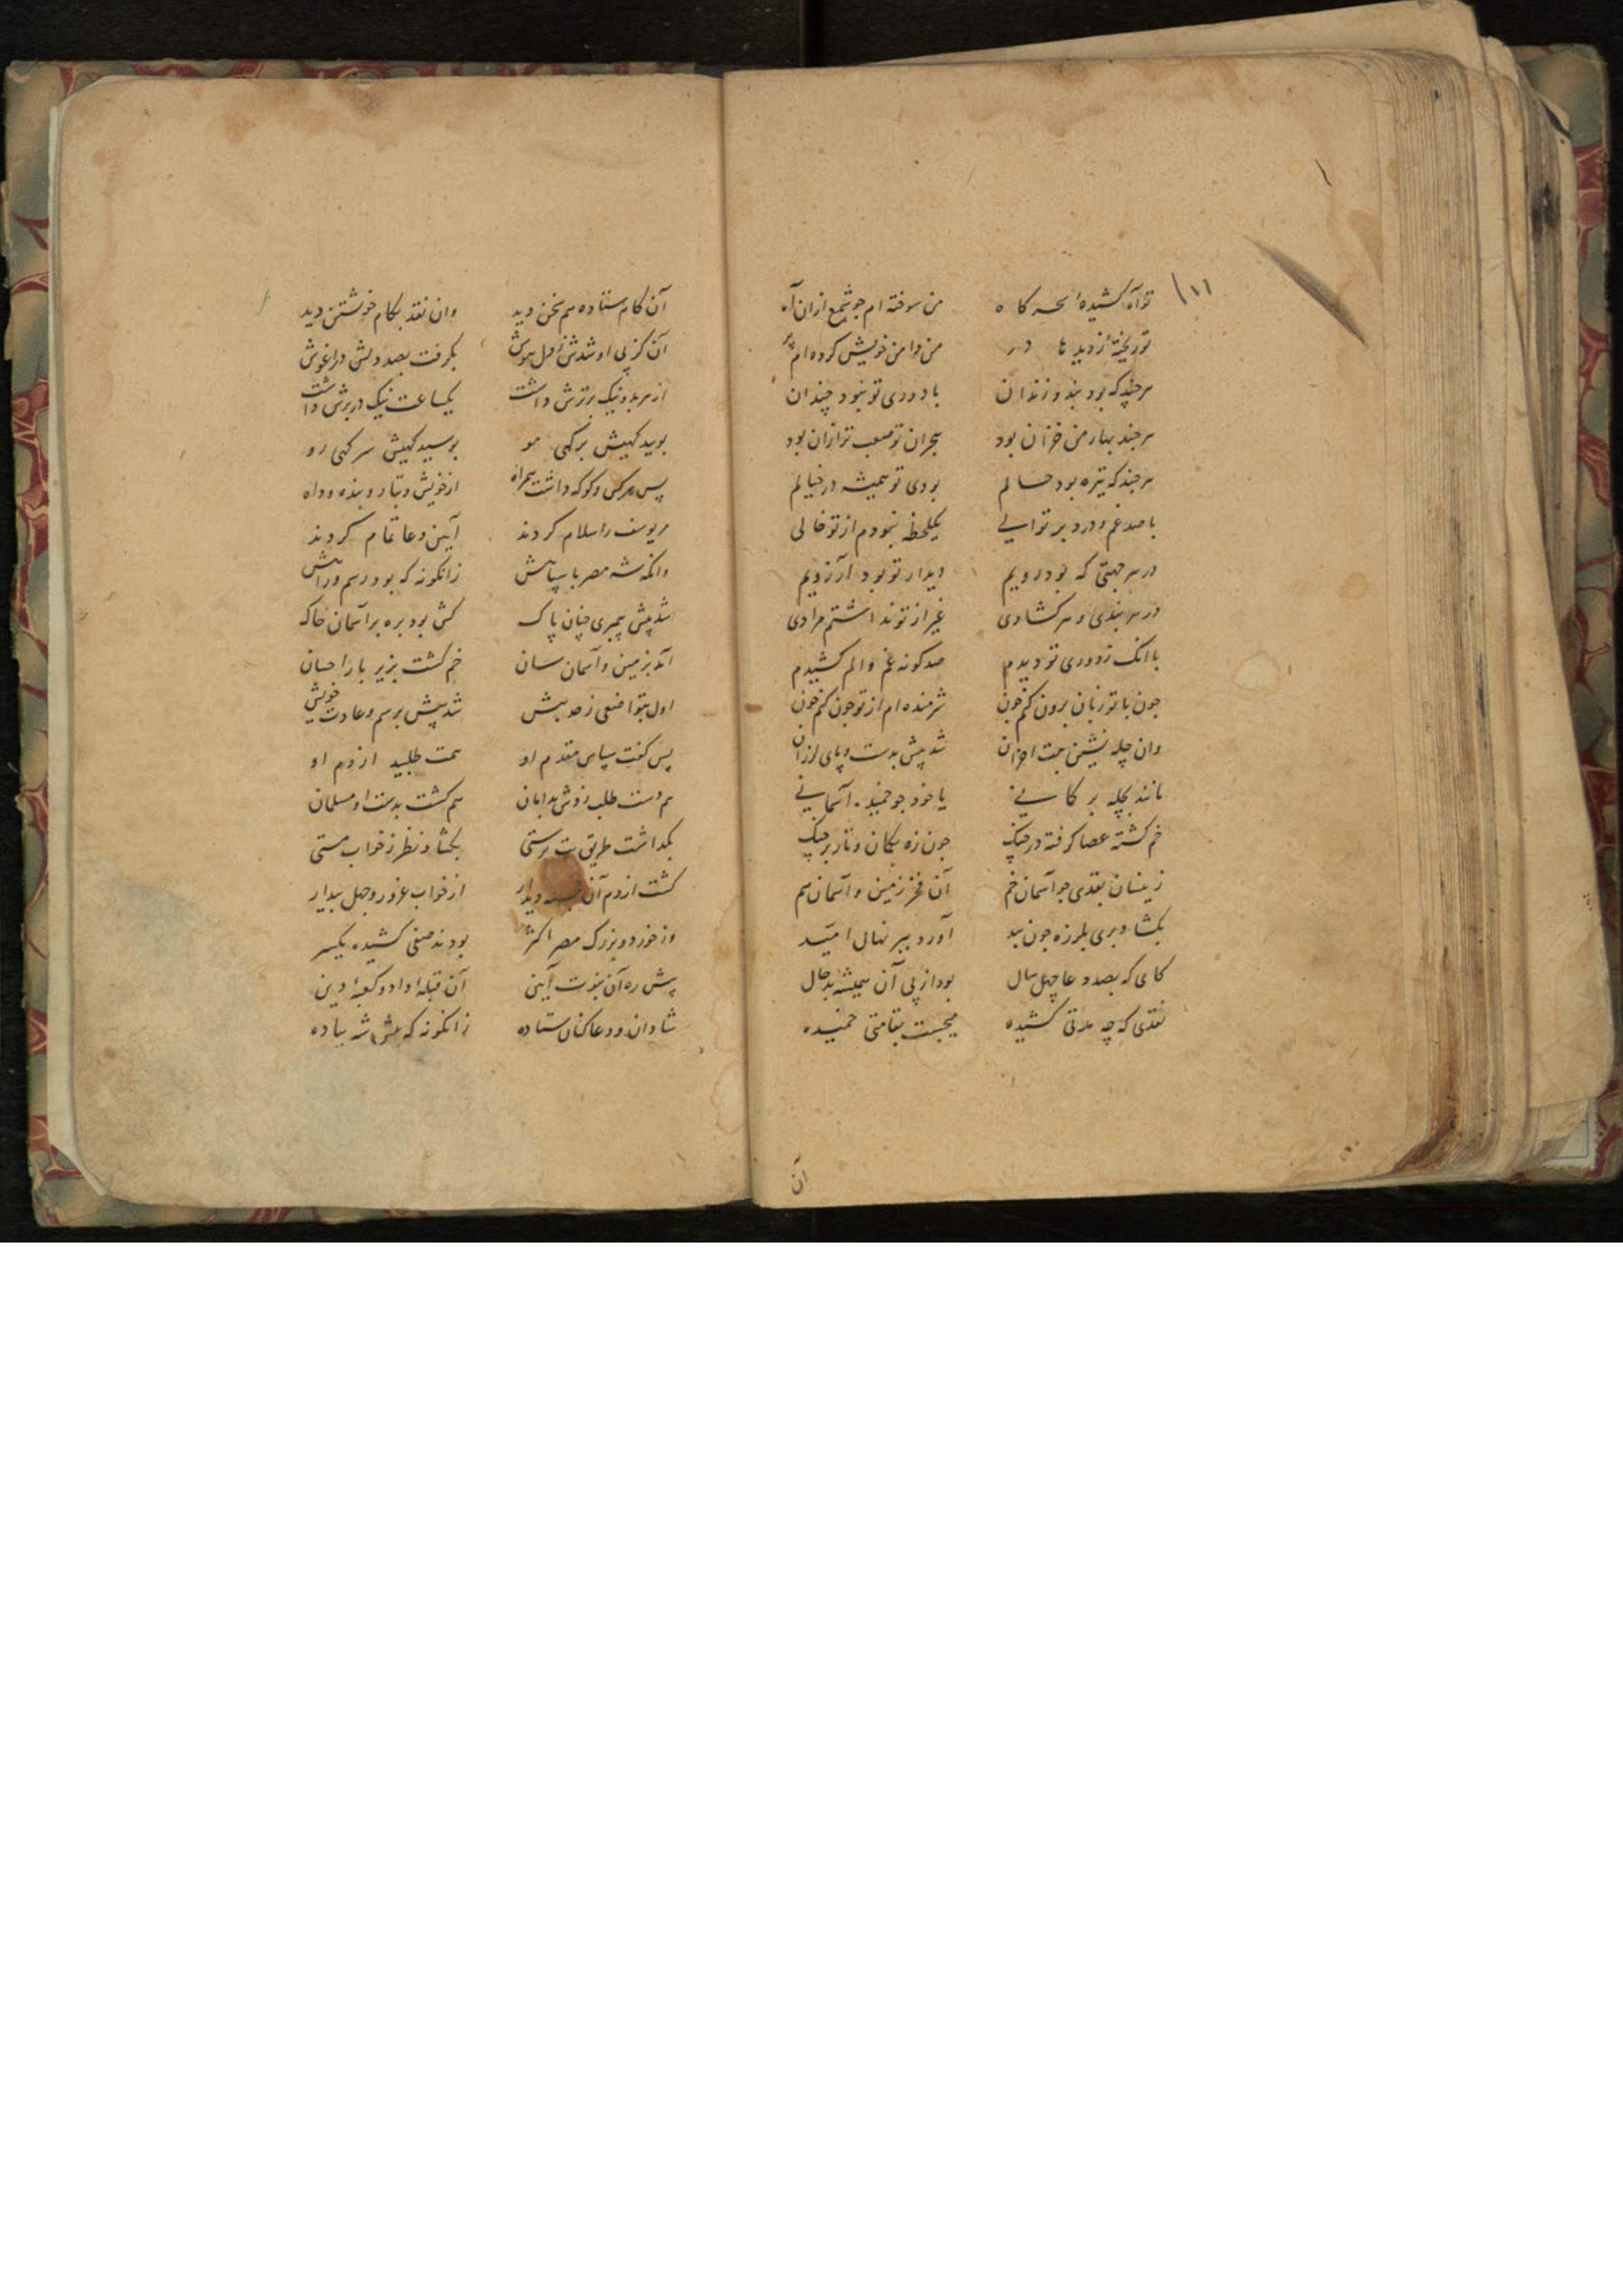 ۱۱۶
تو آه کشیدهٔ سحرکاه من سوخته ام جو شمع ازان آه
تو ریختهٔ ز دیدها در من دامن خویش کرده ام پر
هرجند که بود بند و زندان با دوری تو نبود چندان
هرجند بهار من خزان بود هجران تو صعب تر ازان بود
هرجند که تیره بود حالم بودی تو همیشه در خیالم
با صد غم و درد بر توالی یکلحظه نبودم از تو خالی
در هر جهتی که بود رویم دیدار تو بود آرزویم
در هر بندی و هر کشادی غیر از تو نداشتم مرادی
با انک ز دوری تو دیدم صد کونه غم و الم کشیدم
جون با تو زبان برون کنم جون شرمنده ام از تو جون کنم جون
وان چله نشین بیت احزان شد پیش بدست و پای لرزان
مانند بچله بر کمانی یا خود جو خمیده آسمانی
خم کشته عصا کرفته در جنک جون زه بکمان و تار بر جنک
زینسان بقدی جو آسمان خم آن فخر زمین و آسمان هم
بکشاد بری بلرزه جون بید آورد ببر نهال امید
کامی که بصد دعا چهل سال بود از پی آن همیشه بد حال
نقدی که چه مدتی کشیده میجست بقامتی خمیده
آن
آن کام ستاده هم نخن دید وان نقد بکام خویشتن دید
آن کز پی او شدش ز دل هوش بکرفت بصد دلش در اغوش
از هر بد و نیک برترش داشت یکساعت نیک در برش داشت
بویید کهیش بر کهی مو بوسید کهیش سر کهی رو
پس هرکس و کو که داشت همراه از خویش و تبار و بنده و داه
مر یوسف را سلام کردند آیین دعا تمام کردند
وانکه شه مصر با سپاهش زانکونه که بود رسم و راهش
شد پیش پیمبری چنان پاک کش بود بره بر آسمان خاک
آمد بزمین و آسمان سان خم کشت بزیر بار احسان
اول بتواضعی ز حد بیش شد پیش برسم و عادت خویش
پس کفت سپاس مقدم او همت طلبید از دم او
هم دست طلب زدش بدامان هم کشت بدست او مسلمان
بکداشت طریق بت پرستی بکشاد نظر ز خواب مستی
کشت از دم آن دیدار از خواب غرور و جهل بیدار
وز خورد و بزرک مصر اکثر بودند صفی کشیده یکسر
پیش ره آن نبوت آیین آن قبلهٔ داد و کعبهٔ دین
شادان و دعا کنان ستاده زانکونه که پیش شه پیاده